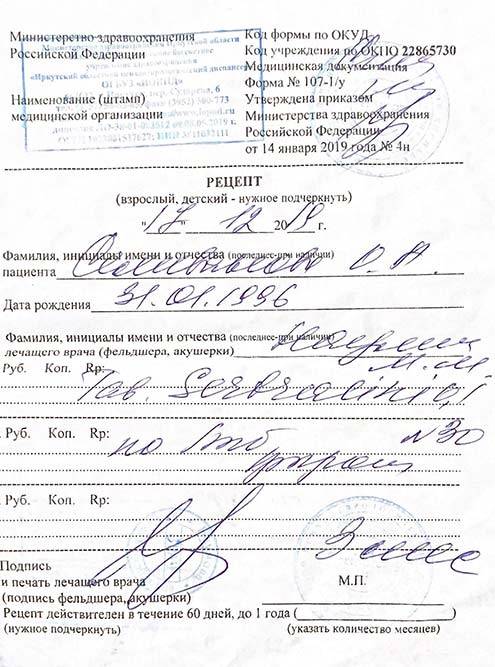 Министерство здравоохранения
Российской Федерации
Наименование (штамп)
медицинской организации
Код формы по ОКУД
Код учреждения по ОКПО 22865730
Медицинская документация
Форма № 107-1/у
Утверждена приказом
Министерства здравоохранения
Российской Федерации
от 14 января 2019 года № 4н
Министерство здравоохранения Иркутской области
учреждение здравоохранения
«Иркутский областной психоневрологический диспансер»
РЕЦЕПТ
(взрослый, детский - нужное подчеркнуть)
"17" 12 2019 г.
Фамилия, инициалы имени и отчества (последнее-при наличии)
пациента О.А.
Дата рождения 31.01.1996
Фамилия, инициалы имени и отчества (последнее-при наличии)
лечащего врача (фельдшера, акушерки)
М.М.
Руб. Коп. Rp:
Tab. Sertralini 0,1
Руб. Коп. Rp:
N 30
по 1 тб
утром
Руб. Коп. Rp:
Подпись
и печать лечащего врача
(подпись фельдшера, акушерки)
М.П.
Рецепт действителен в течение 60 дней, до 1 года ( )
(нужное подчеркнуть) (указать количество месяцев)